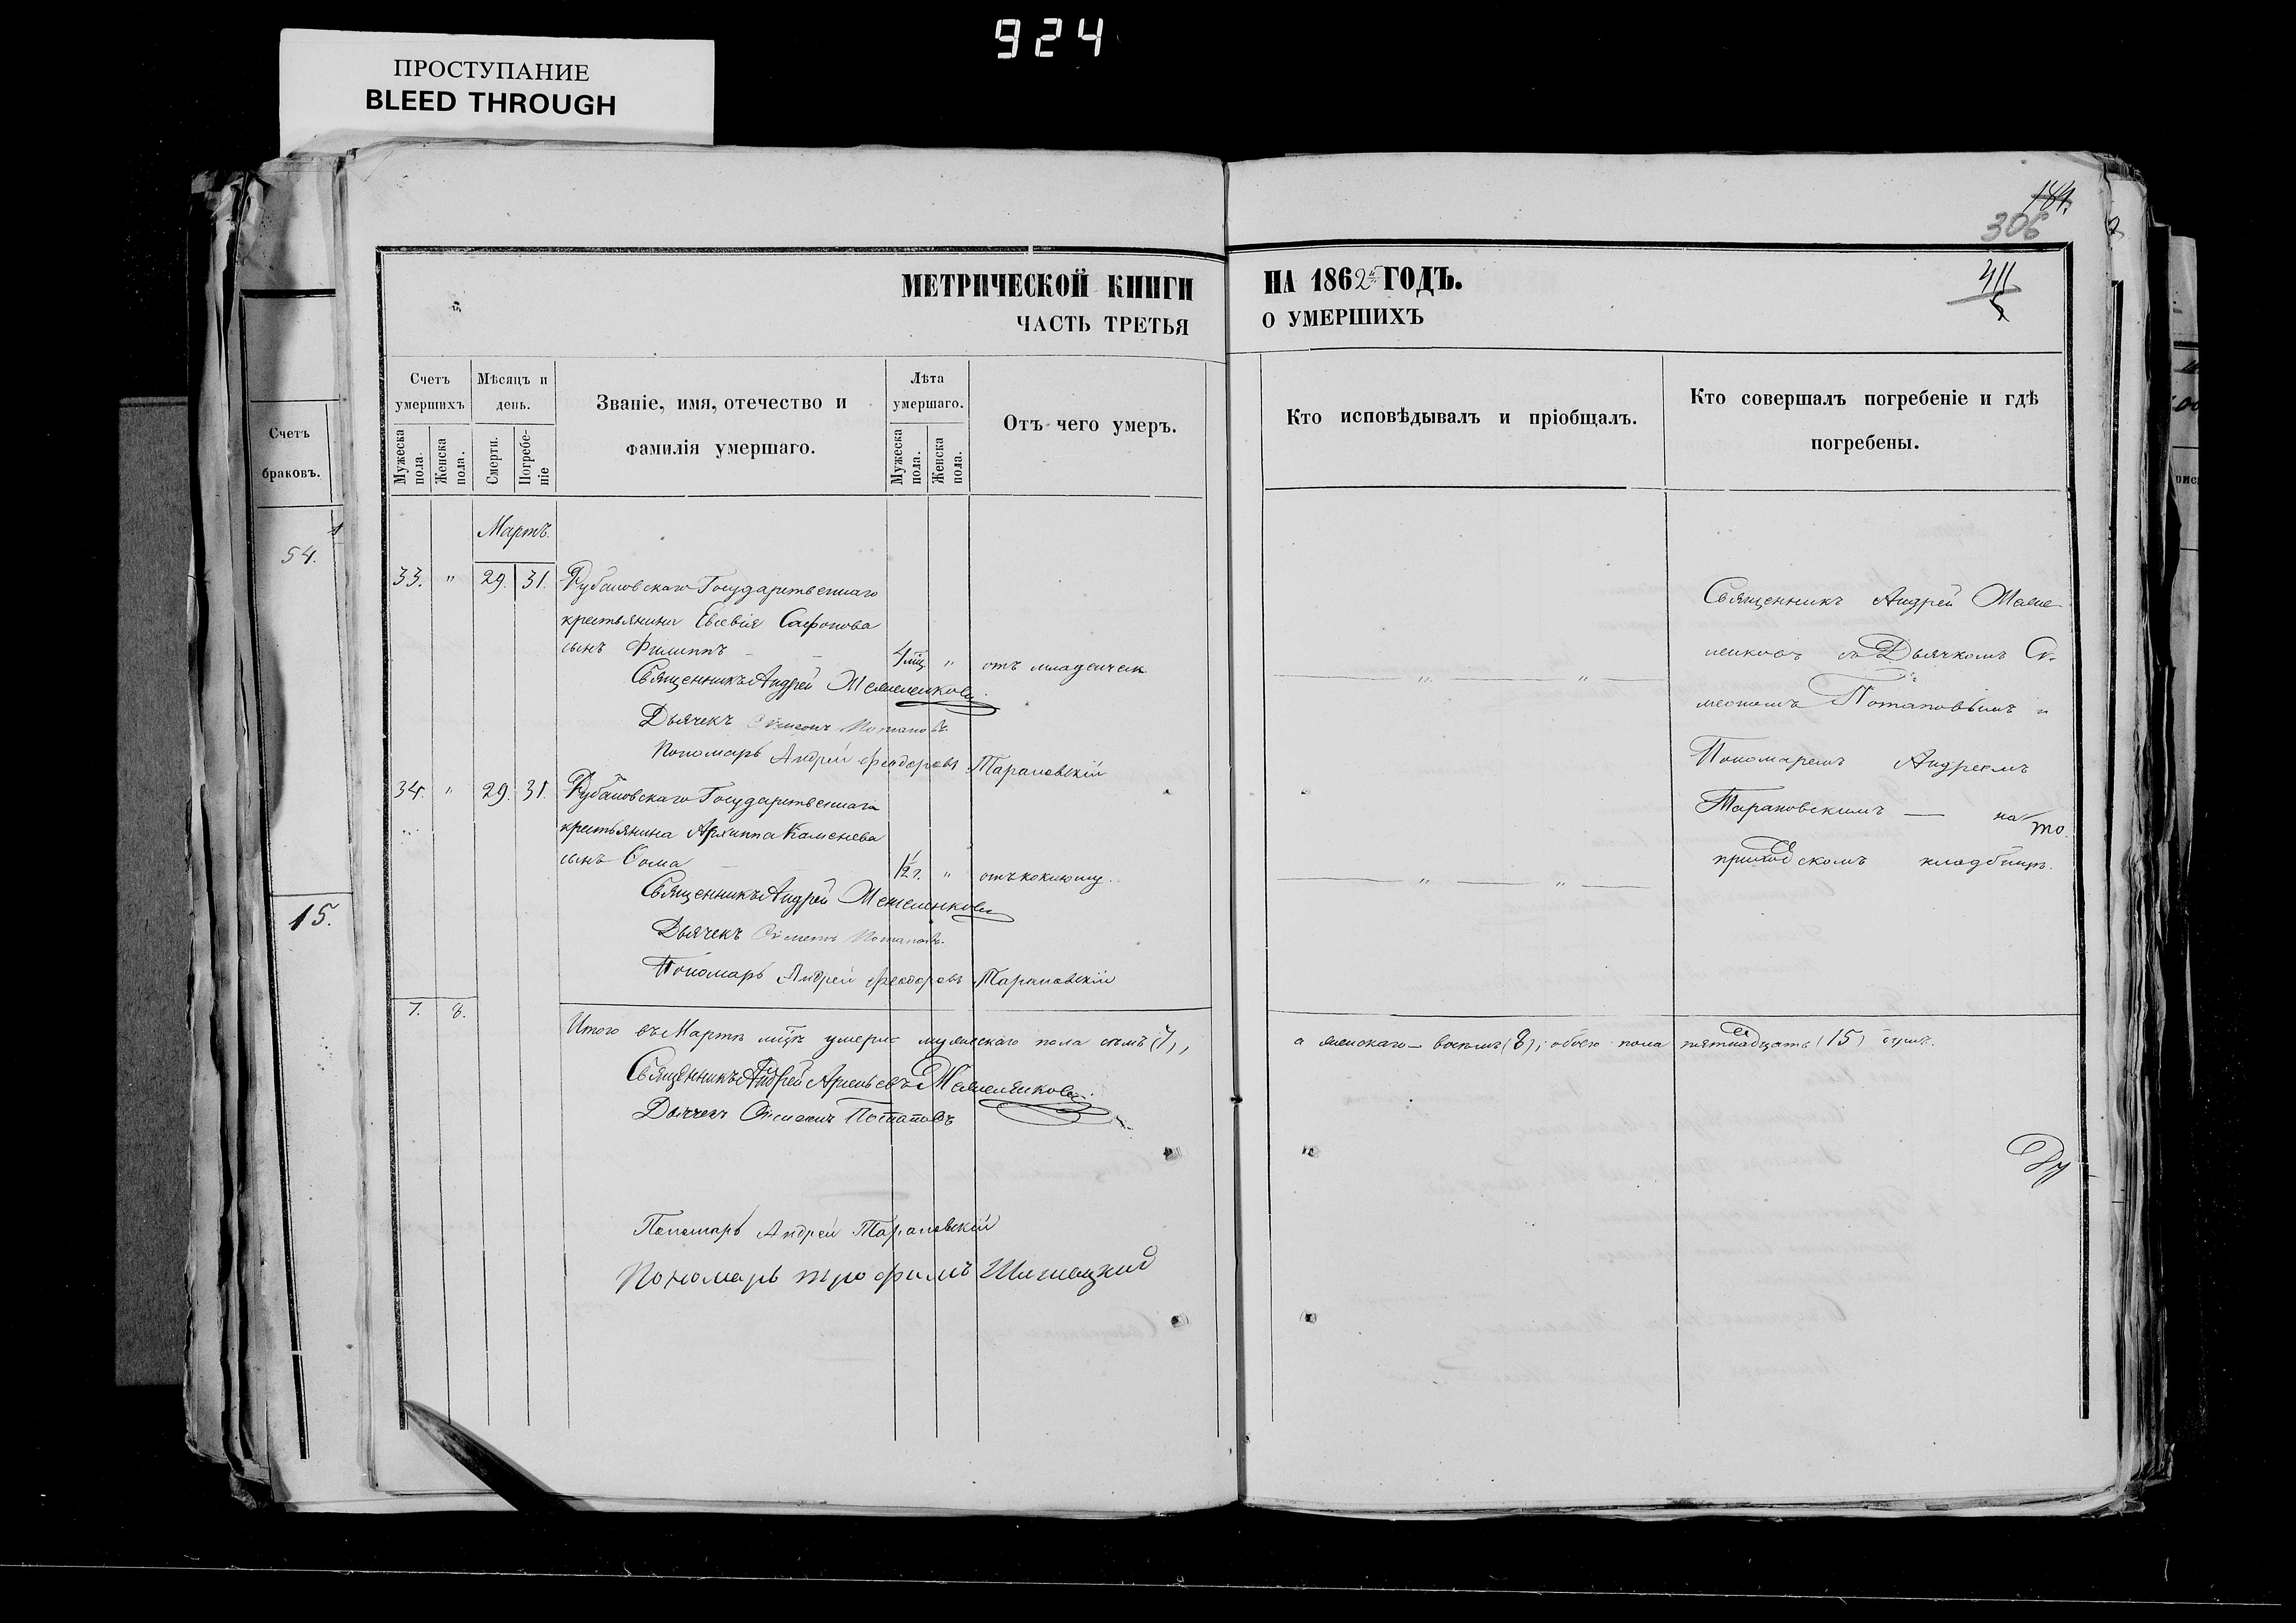 924
ПРОСТУПАНИЕ
BLEED THROUGH
184.
306
МЕТРИЧЕСКОЙ КНИГИ НА 1862й ГОДЪ.
ЧАСТЬ ТРЕТЬЯ О УМЕРШИХЪ
Счетъ браковъ.
54.
15.
Счетъ умершихъ
Мужеска пола.
Женска пола.
Мѣсяцъ и день.
Смерти.
Погребеніе
Званіе, имя, отечество и
фамилія умершаго.
Лѣта умершаго.
Мужеска пола.
Женска пола.
Отъ чего умеръ.
Кто исповѣдывалъ и пріобщалъ.
Кто совершалъ погребеніе и гдѣ
погребены.
Мартъ.
33. " 29. 31. Рубановскаго Государственнаго
крестьянина Евсевія Сафонова
сынъ Филиппъ 4 мц. " отъ младенческ.
Священникъ Андрей
Дьячекъ Симеонъ Потаповъ.
Пономарь Андрей Феодоровъ Тарановскій
34. " 29. 31. Рубановскаго Государственнаго
крестьянина Архиппа Каменева
сынъ Ѳома 1/2 г. " отъ коклюшу.
Священникъ Андрей
Дьячекъ Симеонъ Потаповъ.
Пономарь Андрей Феодоровъ Тарановскій
Священникъ Андрей
съ Дьячкомъ Си-
меономъ Потаповымъ и
Пономаремъ Андреемъ
Тарановскимъ — на
приходскомъ кладбищѣ.
7. 8.
Итого въ Мартѣ мцѣ умерло мужескаго пола семь (7),
а женскаго — восемь (8); обоего пола пятнадцать (15) душъ.
Священникъ Андрей
Дьячекъ Симеонъ Потаповъ
Пономарь Андрей Тарановскій
Пономарь трофимъ